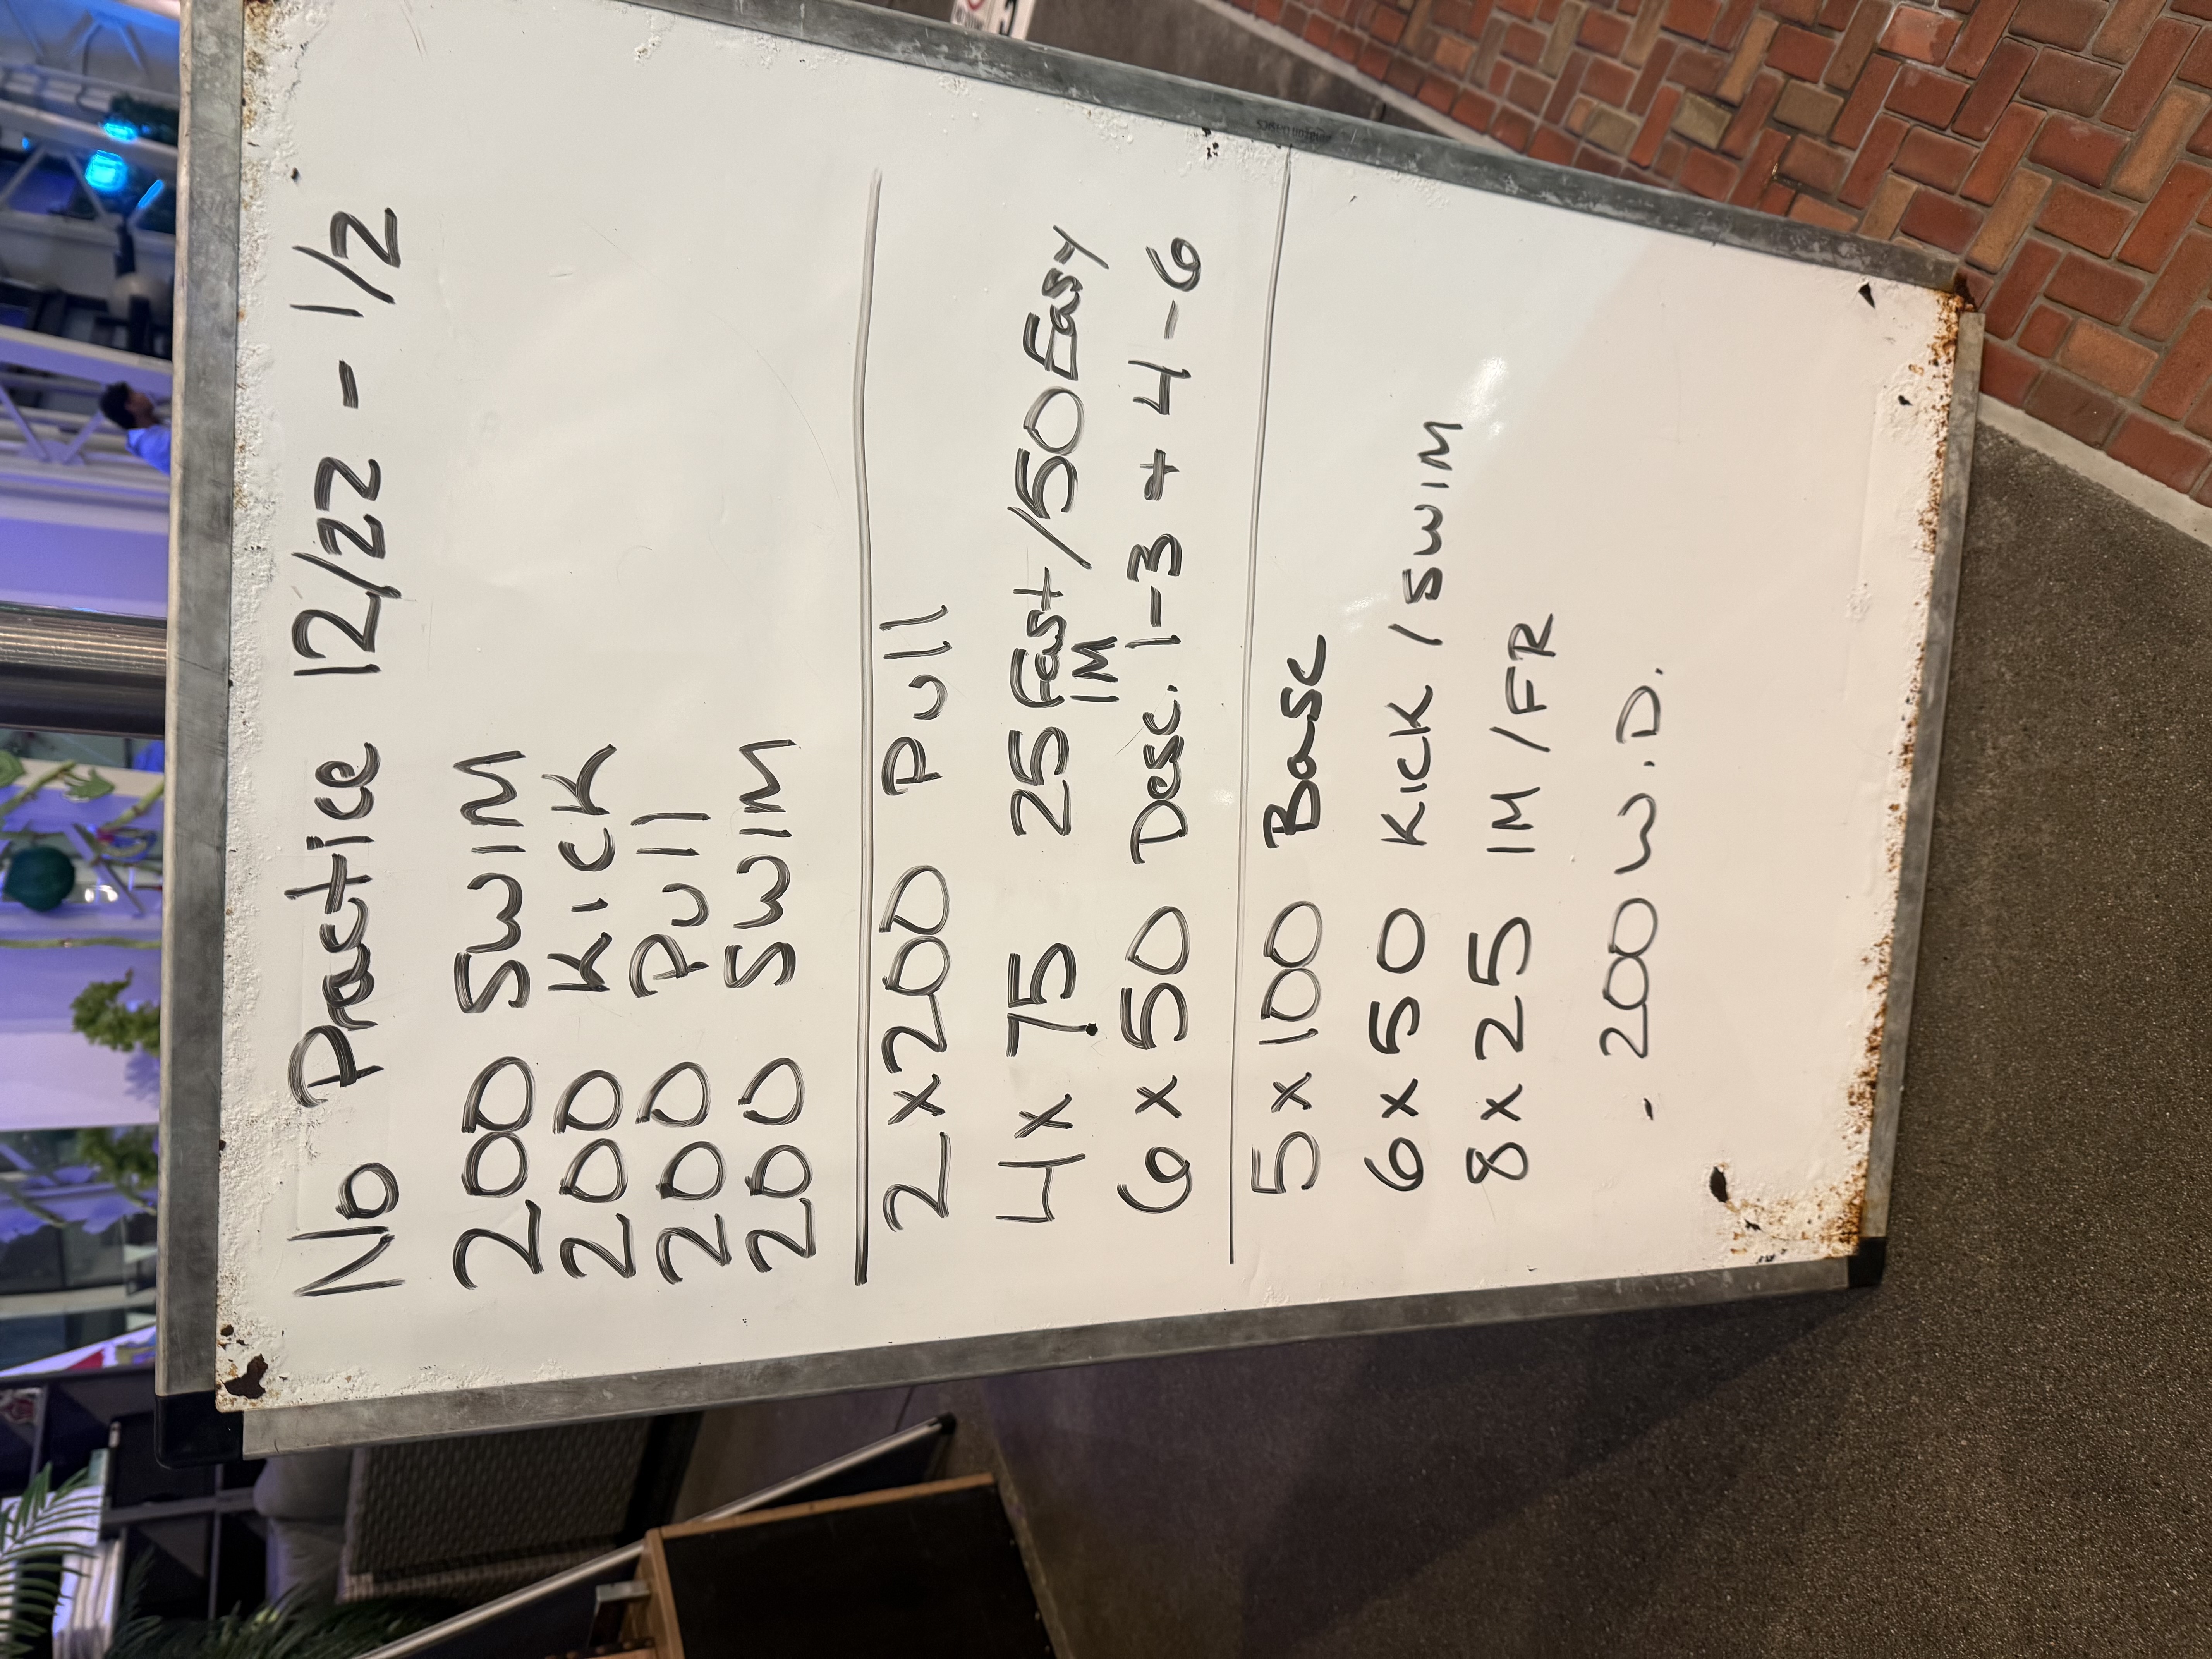 No Practice 12/22 - 1/2
200 SWIM
200 KICK
200 Pull
200 SWIM
2x200 Pull
4x 75 25 Fast/50 Easy
IM
6x50 Desc. 1-3 + 4-6
5x100 Base
6x50 KICK / SWIM
8x25 IM / FR
- 200 W.D.